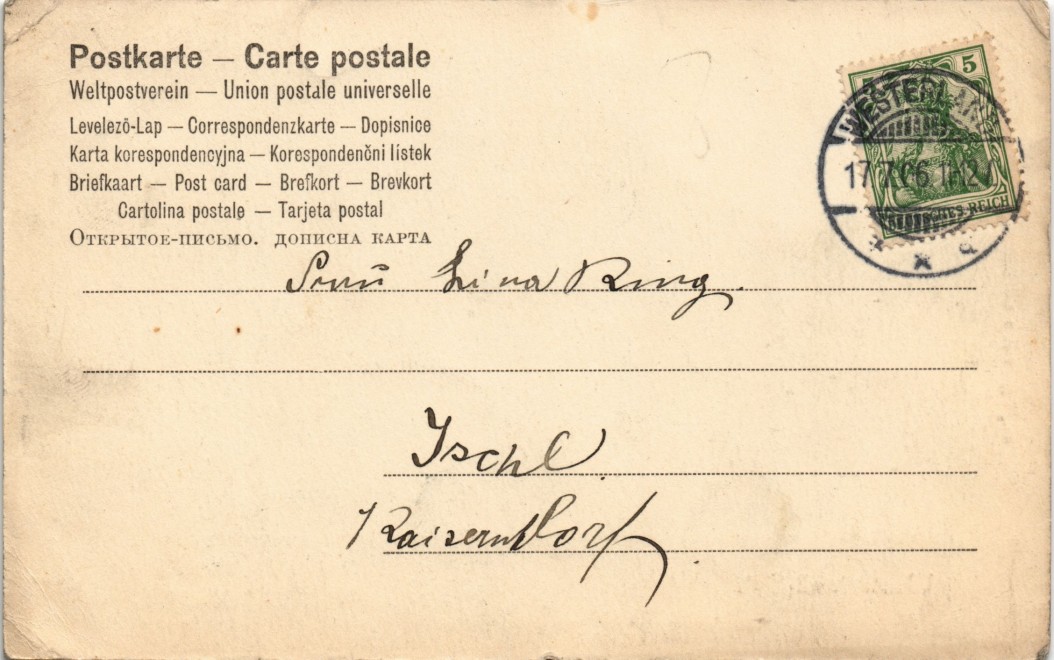 Postkarte — Carte postale
Weltpostverein — Union postale universelle
Levelező-Lap — Correspondenzkarte — Dopisnice
Karta korespondencyjna — Korespondenční lístek
Briefkaart — Post card — Brefkort — Brevkort
Cartolina postale — Tarjeta postal
Открытое-письмо. дописна карта
5
DEUTSCHES REICH
WESTERLAND
17.7.06 11-12V
* * a
Frau Lina Ring.
Ischl
Kaiserndorf